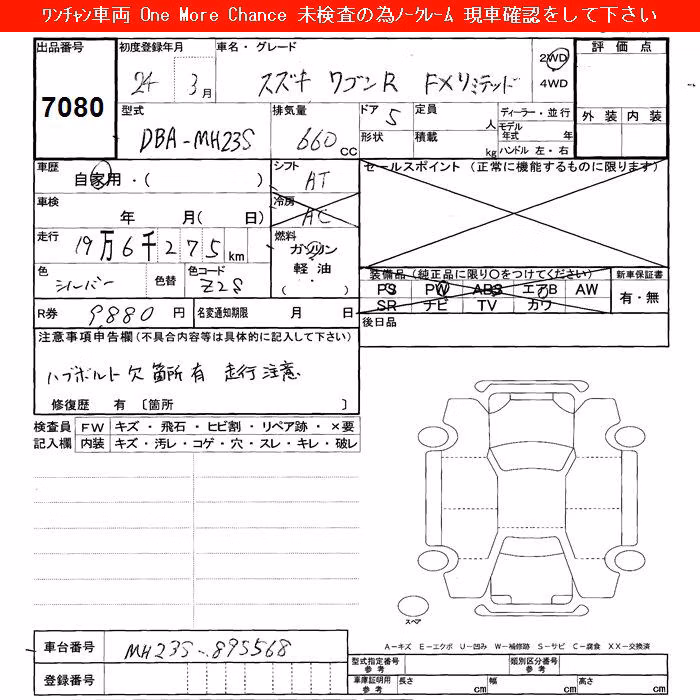 ワンチャン車両 One More Chance 未検査の為ノークレーム 現車確認をして下さい
出品番号 初度登録年月 車名・グレード 2WD 評価点
7080 24 3月 スズキ ワゴンR FXリミテッド 4WD
型式 排気量 ドア 5 定員 人 ディーラー・並行 外装 内装
DBA-MH23S 660cc 形状 積載 kg モデル年式 年
ハンドル 左・右
車歴 シフト セールスポイント (正常に機能するものに限ります)
自家用・( ) AT
車検 年 月( 日) 冷房 AC
走行 19万6千275km 燃料 ガソリン
軽油・( )
色 シルバー 色替 色コード Z2S
装備品(純正品に限り〇をつけてください) 新車保証書
PS PW ABS エアB AW 有・無
SR ナビ TV カワ
R券 9880円 名変通知期限 月 日 後日品
注意事項申告欄(不具合内容等は具体的に記入して下さい)
ハブボルト欠箇所有 走行注意
修復歴 有 〔箇所 〕
検査員 FW キズ・飛石・ヒビ割・リペア跡・×要
記入欄 内装 キズ・汚レ・コゲ・穴・スレ・キレ・破レ
スペア
車台番号 MH23S-895568
A-キズ E-エクボ U-凹み W-補修跡 S-サビ C-腐食 XX-交換済
登録番号
型式指定番号 参考 類別区分番号 参考
車庫証明用 参考 長さ cm 幅 cm 高さ cm